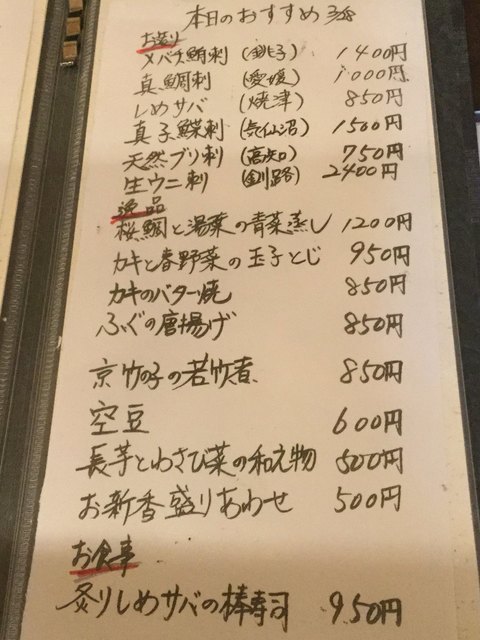 本日のおすすめ 3/28
お造り
メバチ鮪刺 (銚子) 1400円
真鯛刺 (愛媛) 1000円
しめサバ (焼津) 850円
真子鰈刺 (気仙沼) 1500円
天然ブリ刺 (高知) 750円
生ウニ刺 (釧路) 2400円
逸品
桜鯛と湯葉の青菜蒸し 1200円
カキと春野菜の玉子とじ 950円
カキのバター焼 850円
ふぐの唐揚げ 850円
京竹の子の若竹煮 850円
空豆 600円
長芋とわさび菜の和え物 500円
お新香盛りあわせ 500円
お食事
炙りしめサバの棒寿司 950円